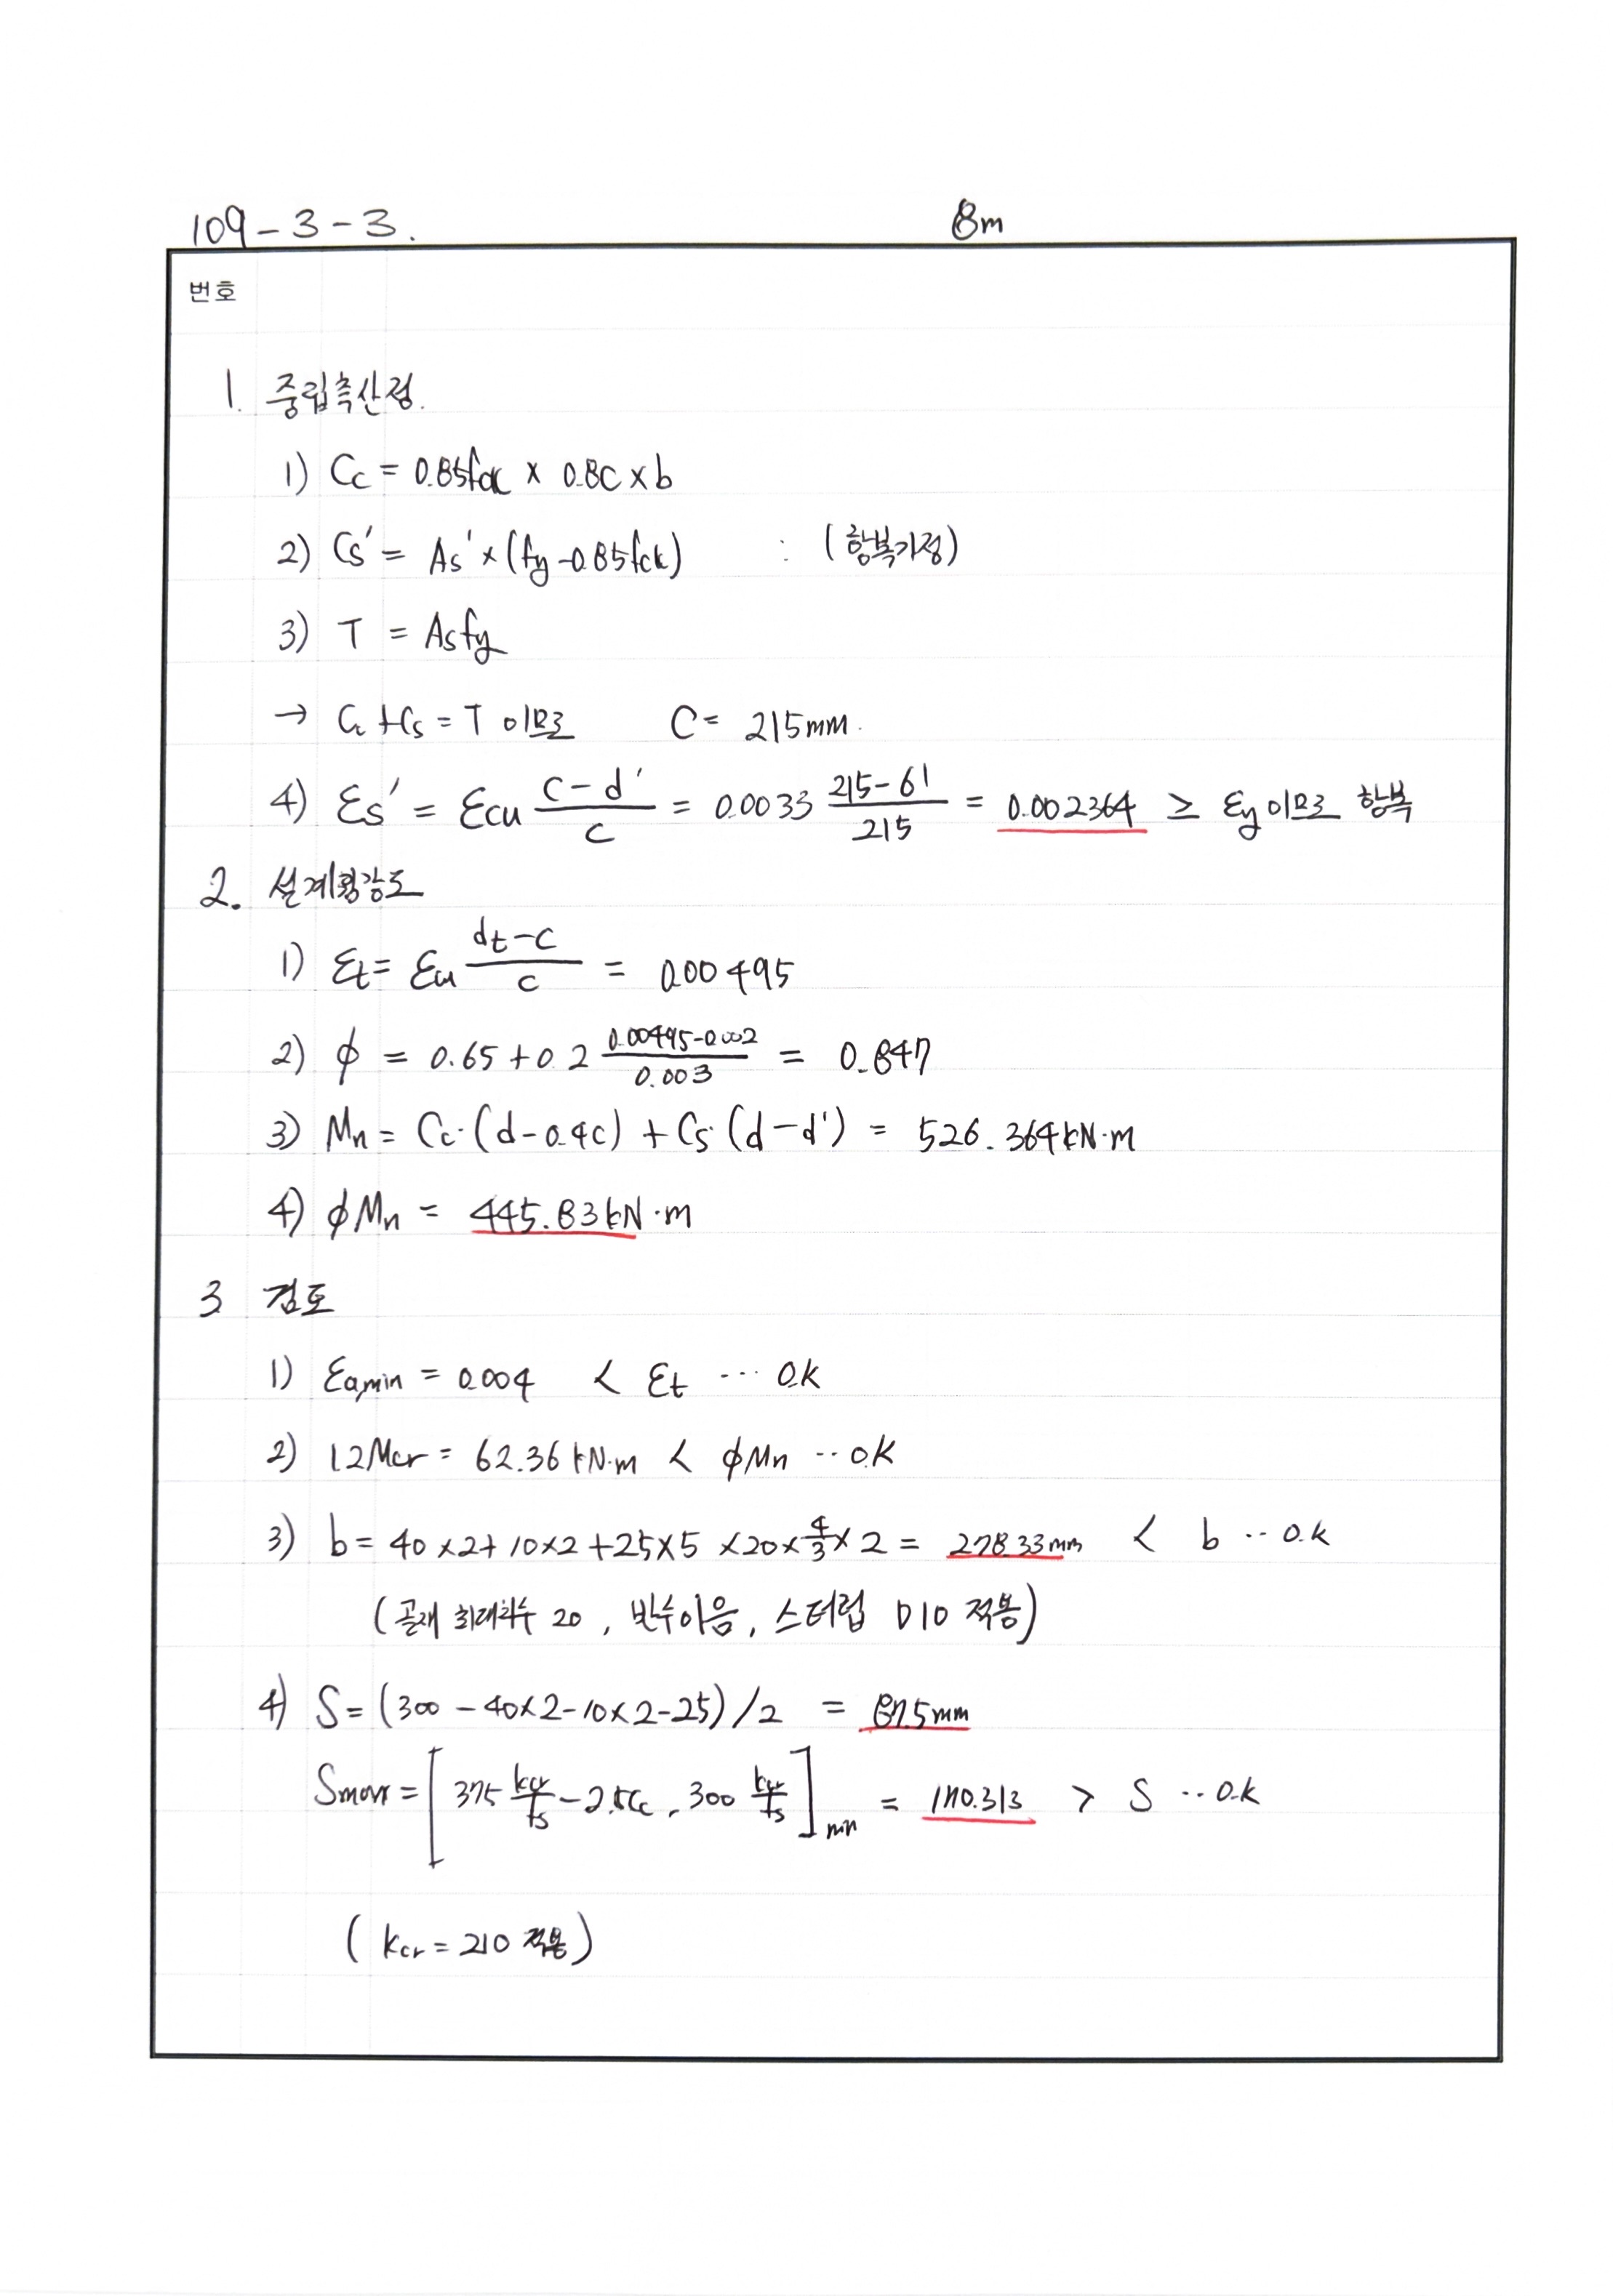 109-3-3.
8m
번호
1. 중립축산정.
1) Cc = 0.85fck × 0.8C × b
2) Cs' = As' × (fy-0.85fck) : (항복가정)
3) T = Asfy
→ Cc + Cs = T 이므로 C = 215mm.
4) εs' = εcu (c-d')/c = 0.0033 (215-61)/215 = 0.002364 ≥ εy이므로 항복
2. 설계휨강도
1) εt = εcu (dt-c)/c = 0.00495
2) ϕ = 0.65 + 0.2 (0.00495-0.002)/0.003 = 0.847
3) Mn = Cc·(d-0.4c) + Cs·(d-d') = 526.364kN·m
4) ϕMn = 445.83kN·m
3 검토
1) εa,min = 0.004 < εt ··· O.K
2) 1.2Mcr = 62.36 kN·m < ϕMn ·· O.K
3) b = 40×2+10×2+25×5 ×20×4/3×2 = 278.33mm < b ·· O.K
(골재 최대치수 20, 반수이음, 스터럽 D10 적용)
4) S = (300 - 40×2-10×2-25)/2 = 87.5mm
Smax = [375 kcr/fs - 2.5Cc, 300 kcr/fs]min = 170.313 > S ·· O.K
(kcr = 210 적용)